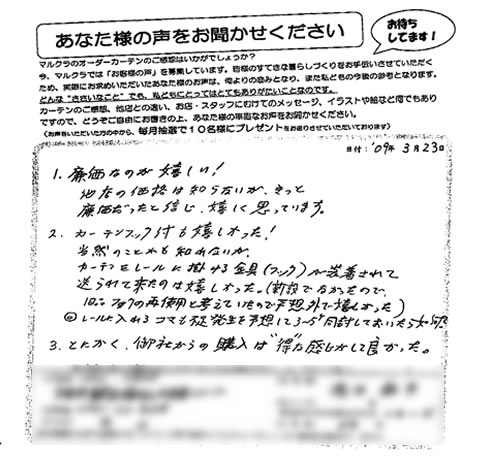 あなた様の声をお聞かせください
お待ち
してます!
マルクラのオーダーカーテンのご感想はいかがでしょうか?
今、マルクラでは「お客様の声」を募集しています。皆様のすてきな暮らしづくりをお手伝いさせていただく
ため、実際にお求めいただいたあなた様のお声は、何よりの励みとなり、また私どもの今後の参考となります。
どんな“ささいなこと”でも、私どもにとってはとてもありがたいことなのです。
カーテンのご感想、他店との違い、お店・スタッフにむけてのメッセージ、イラストや絵など何でもあり
ですので、どうぞご自由にお書きの上、あなた様の率直なお声をお聞かせください。
〈お声をいただいた方の中から、毎月抽選で10名様にプレゼントをお送りさせていただいております〉
日付: '09年 3月23日
1. 廉価なのが嬉しい!
他店の価格は知らないが、きっと
廉価だったと信じ、嬉しく思っています。
2. カーテンフック付も嬉しかった!
当然のことかも知れないが、
カーテンをレールに掛ける金具(フック)が装着されて
送られて来たのは嬉しかった。(新設でなかったので、
旧フックの再使用と考えていたので予想外で嬉しかった)
レールに入れるコマも 発生を予想して3〜5ヶ同封しておいたら
3. とにかく、御社からの購入は“得”な感じがして良かった。